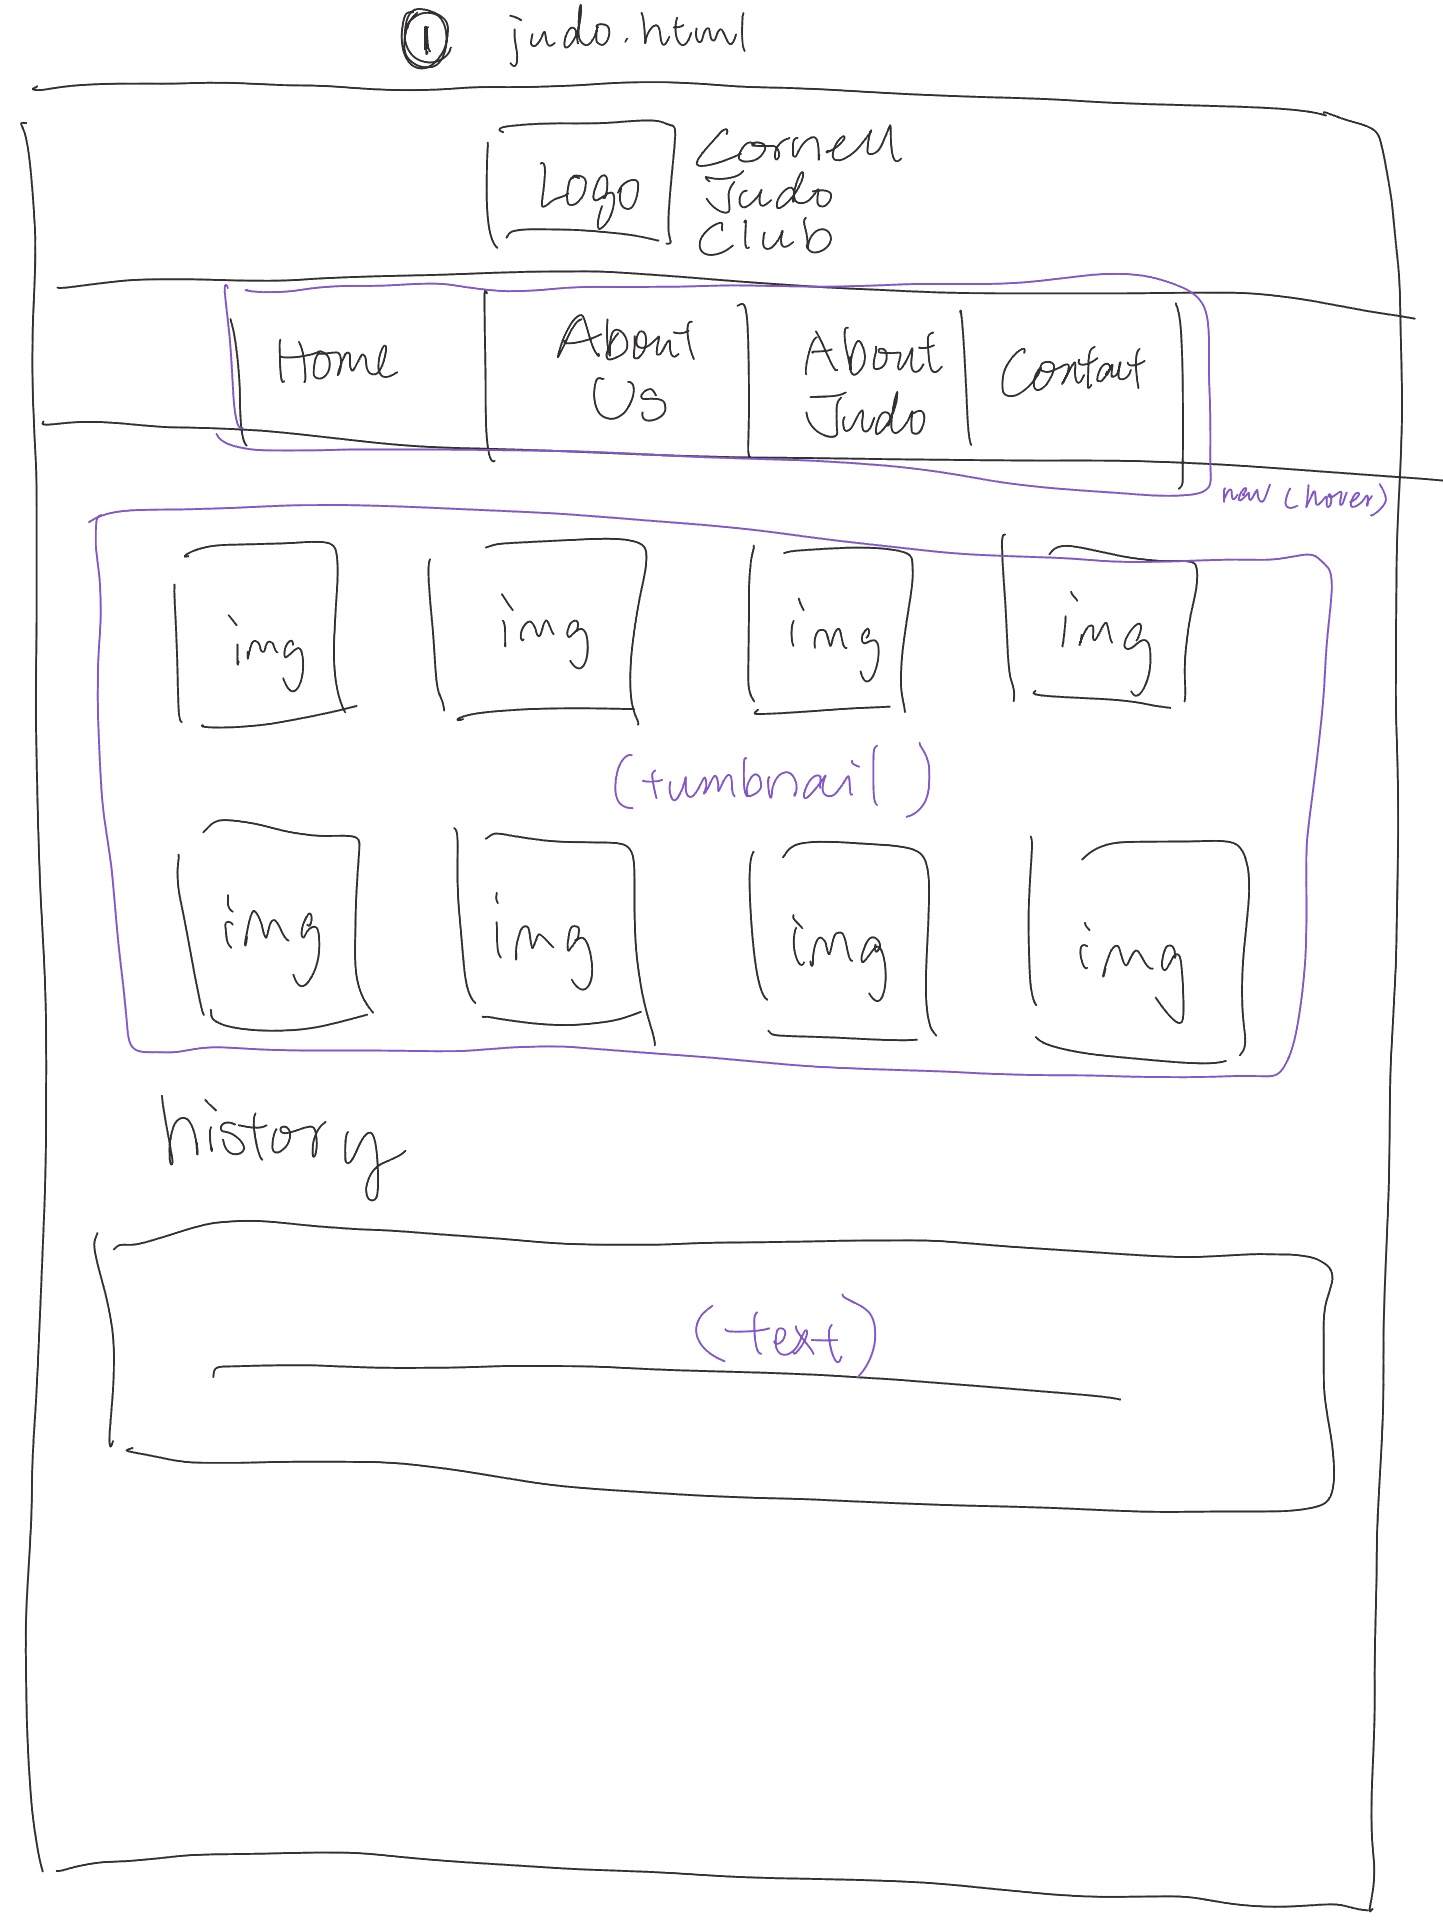 1 judo.html
Logo
Cornell
Judo
Club
Home
About
Us
About
Judo
Contact
nav (hover)
img
img
img
img
(tumbnail)
img
img
img
img
history
(text)